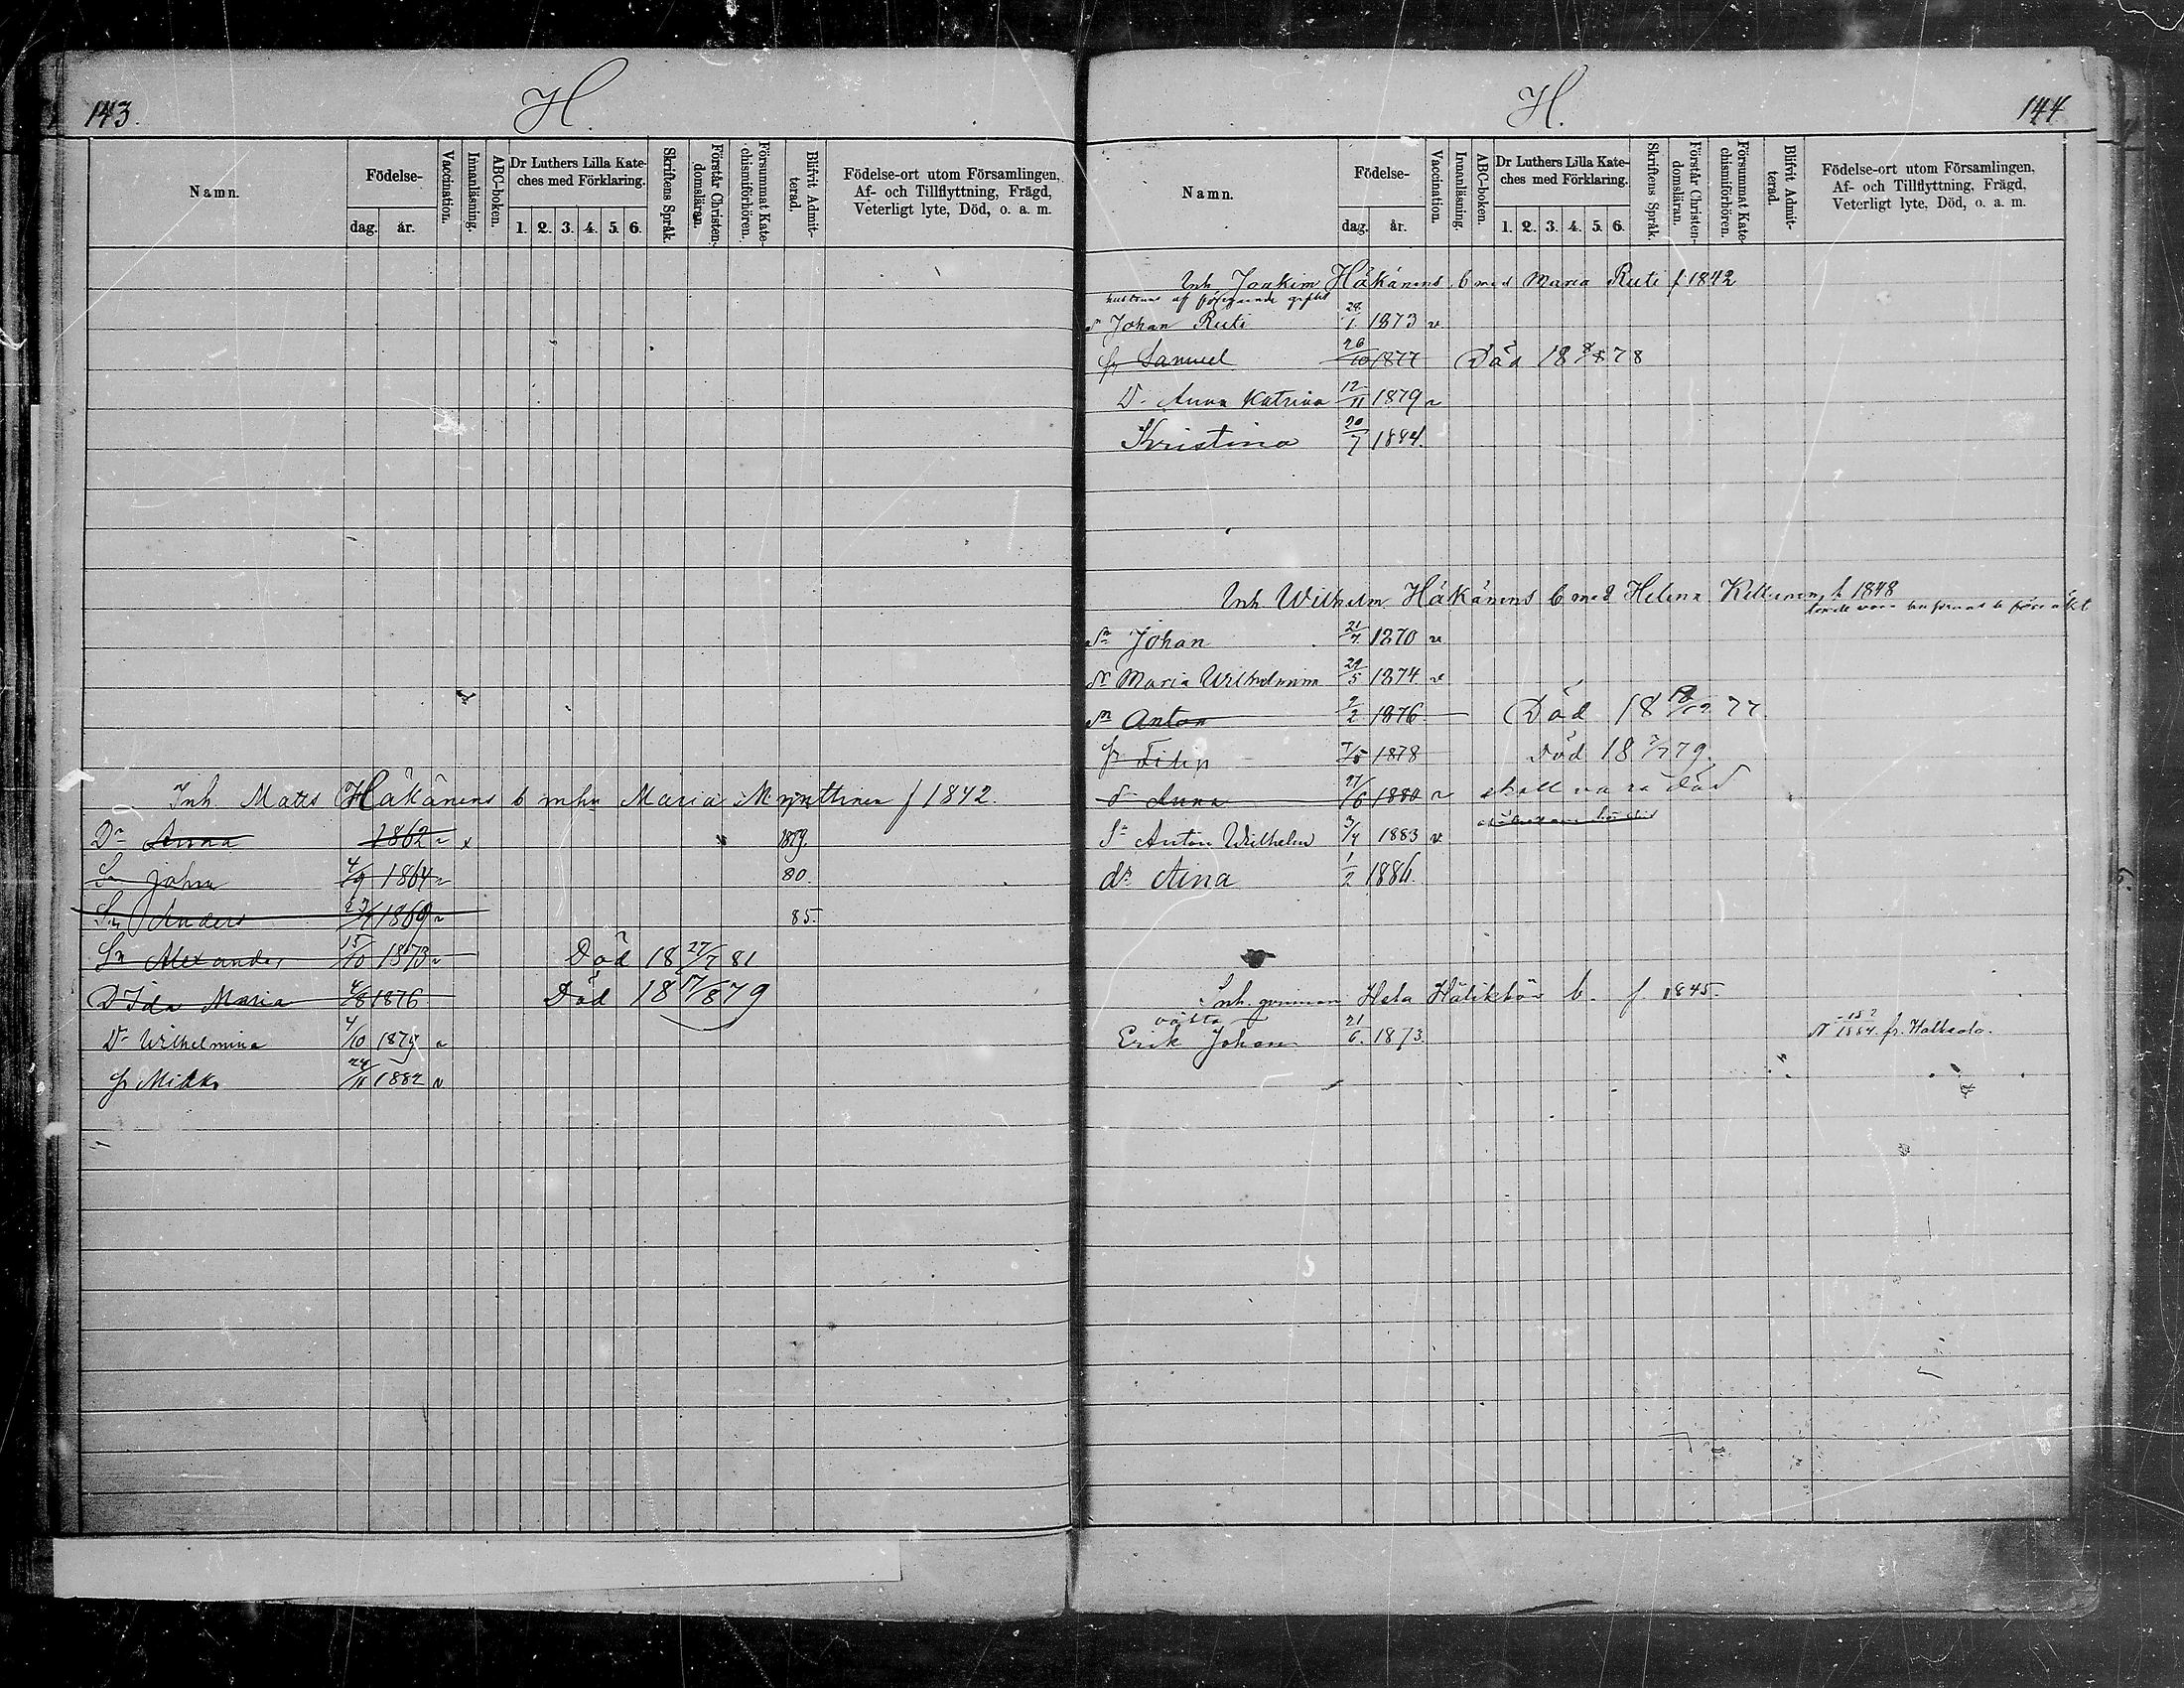 143.
H.
Namn.
Födelse-
dag.
år.
Vaccination.
Innanläsning.
ABC-boken.
Dr Luthers Lilla Kate-
ches med Förklaring.
1. 2. 3. 4. 5. 6.
Skriftens Språk.
Förstår Christen-
domsläran.
Försummat Kate-
chismiförhören.
Blifvit Admit-
terad.
Födelse-ort utom Församlingen,
Af- och Tillflyttning, Frägd,
Veterligt lyte, Död, o. a. m.
Inh. Matts Häkänens b mhu Maria Mynttinen f 1842.
Dr Anna 1862 v x 1879.
Sn Johan 4/9 1864 v 80.
Sn Anders 1869 v 85.
Sn Alexander 15/10 1873 v Död 18 27/7 81
Dr Ida Maria 4/8 1876 Död 18 17/8 79
Dr Wilhelmina 4/10 1879 v
Mikko 24/11 1882 v
H.
144
Namn.
Födelse-
dag.
år.
Vaccination.
Innanläsning.
ABC-boken.
Dr Luthers Lilla Kate-
ches med Förklaring.
1. 2. 3. 4. 5. 6.
Skriftens Språk.
Förstår Christen-
domsläran.
Försummat Kate-
chismiförhören.
Blifvit Admit-
terad.
Födelse-ort utom Församlingen,
Af- och Tillflyttning, Frägd,
Veterligt lyte, Död, o. a. m.
Inh Joakim Häkänens b med Maria Ruti f 1842
hustruns af föregående gifte
Johan Ruti 29/1 1873 v
Samuel 26/10 1877 Död 18 8/8 78
D. Anna Katrina 12/11 1879 v
Kristina 20/7 1884.
Inh Wilhelm Häkänens b med Helena f 1848
Sn Johan 21/7 1870 v
Dr Maria Wilhelmina 29/5 1874 v
Sn Anton 9/2 1876 Död 18 77
Filip 7/5 1878 Död 18 7/7 79.
Anna 27/6 1880 v skall vara död
Sn Anton Wilhelm 3/4 1883 v
dr Aina 1/2 1886.
Inh. qvinnan Hela b. f 1845.
Erik Johan 21/6 1873 1884. fr.